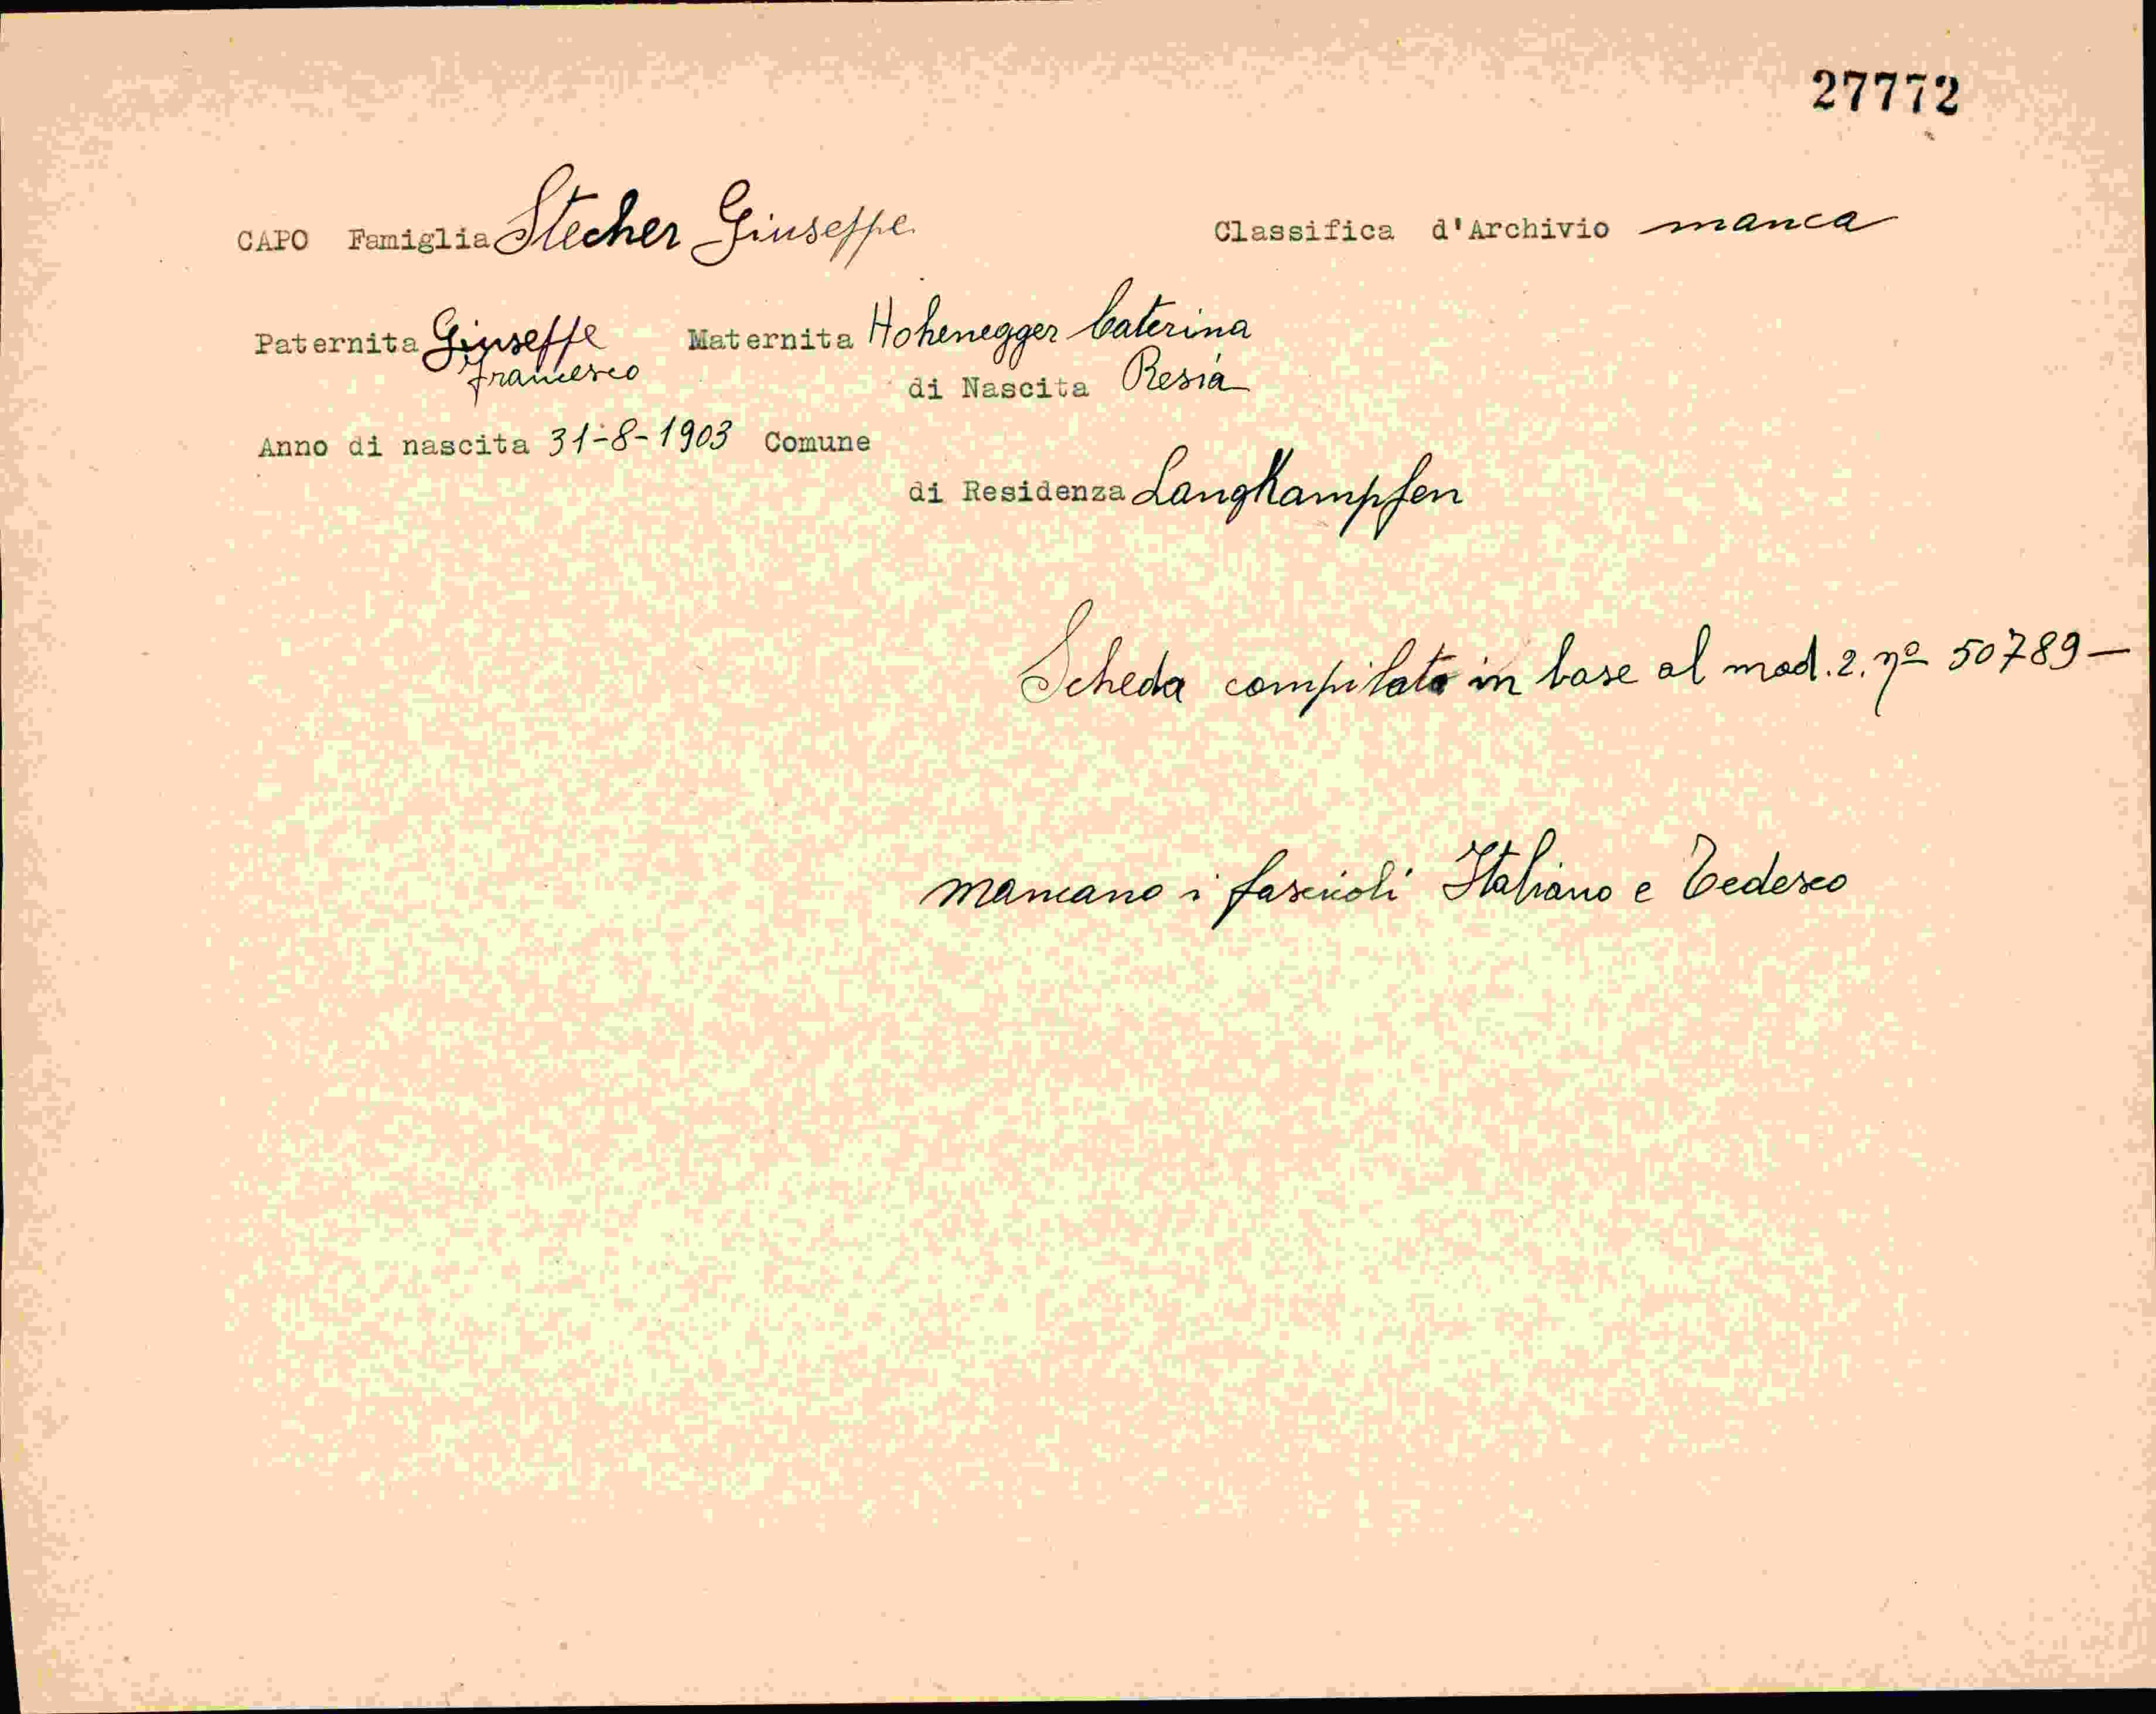 27772
CAPO Famiglia Stecher Giuseppe
Classifica d'Archivio manca
Paternita Giuseppe Francesco
Maternita Hohenegger Caterina
di Nascita Resia
Anno di nascita 31-8-1903 Comune
di Residenza Langkampfen
Scheda compilata in base al mod. 2. nº 50789 —
mancano i fascicoli Italiano e Tedesco